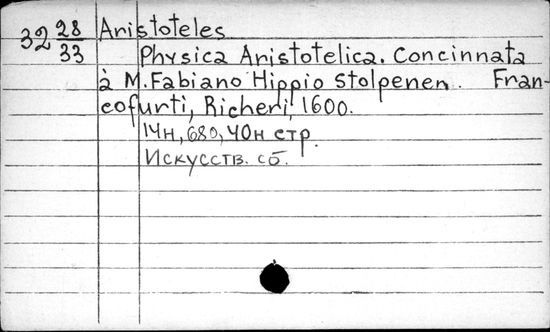 32 28/33 Aristoteles
Physica Aristotelica. Concinnata
à M. Fabiano Hippio Stolpenen. Fran-
cofurti, Richeri, 1600.
14н, 680, 40н стр.
Искусств. сб.